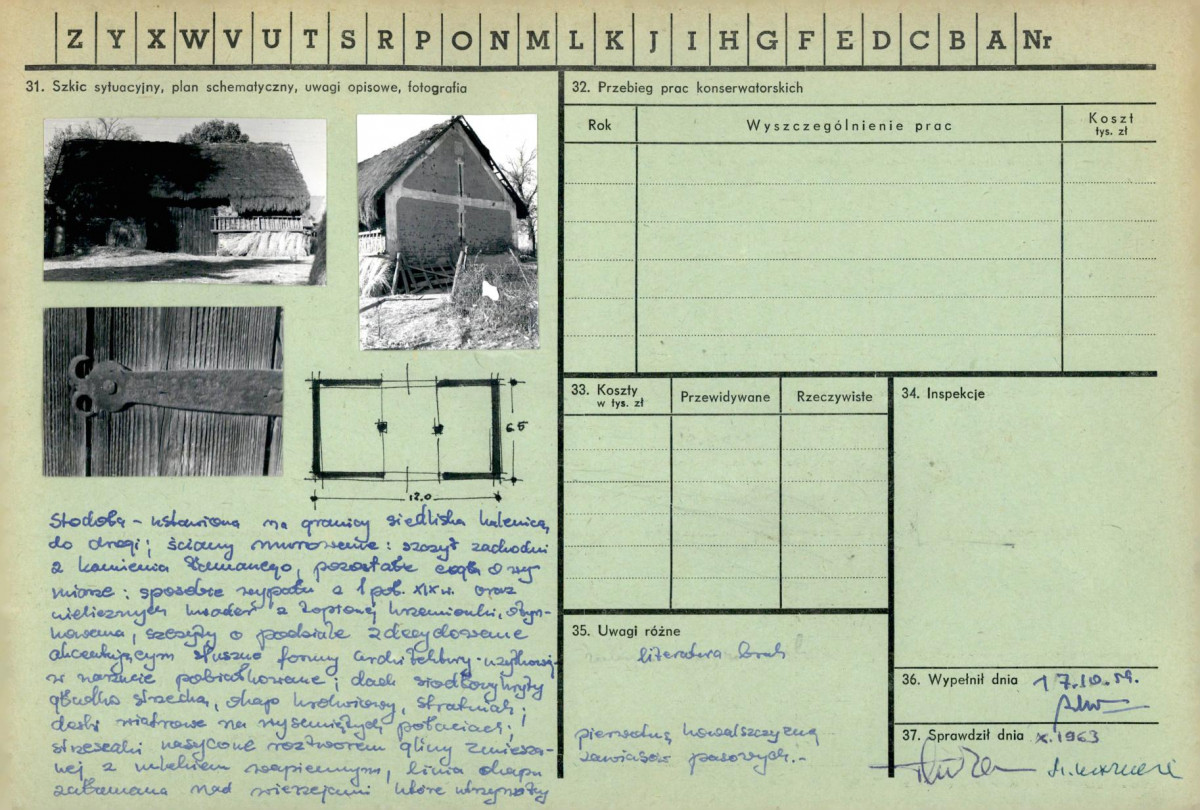 Z Y X W V U T S R P O N M L K J I H G F E D C B A Nr
31. Szkic sytuacyjny, plan schematyczny, uwagi opisowe, fotografia
6.5
12.0
Stodoła – ustawiona na granicy siedliska kalenicą
do drogi; ściany murowane: szczyt zachodni
z kamienia łamanego, pozostałe cegła o wy
miarze: sposobie wypału z 1 poł. XIX w. oraz
nielicznych wkładek z topionej krzemionki, otyn-
kowana, szczyty o podziale zdecydowanie
akcentującym słuszne formy architektury użytkowej
w narzucie pobiałkowane; dach siodłowy kryty
gładko strzechą, okap
deski wiatrowe na połaciach;
nasycone roztworem gliny zmiesza-
nej z mlekiem wapiennym, linia okapu
załamana nad wierzejami które utrzymały
32. Przebieg prac konserwatorskich
Rok Wyszczególnienie prac Koszt
tys. zł
33. Koszty
w tys. zł Przewidywane Rzeczywiste
34. Inspekcje
35. Uwagi różne
literatura brak
pierwotną kowalszczyznę
zawiasów pasowych.-
36. Wypełnił dnia 17.10.59.
37. Sprawdził dnia X.1963